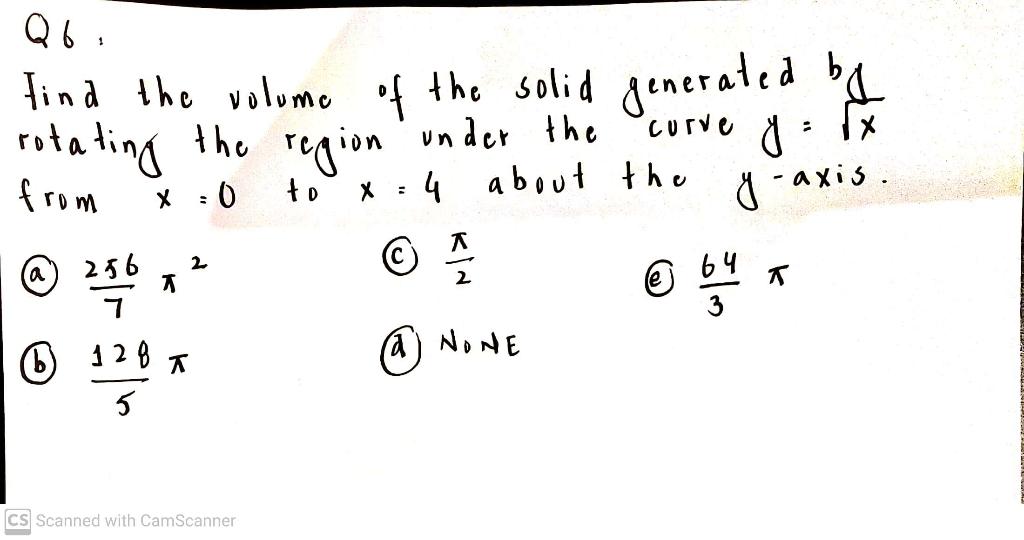 Q6:
Find the volume of the solid generated by
rotating the region under the curve y = √x
from x = 0 to x = 4 about the y-axis.
ⓐ 256/7 π² ⓒ π/2 ⓔ 64/3 π
ⓑ 128/5 π ⓓ NONE
CS Scanned with CamScanner